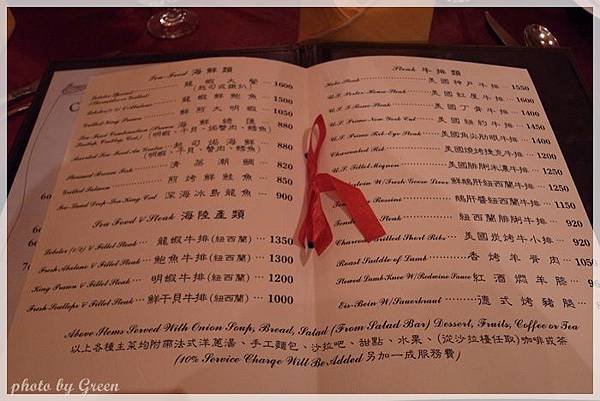 Sea Food 海鮮類
龍蝦大餐 1600
(起司或鐵扒)
龍蝦鮮鮑魚 1500
鮮煎大明蝦 1050
海鮮總匯 880
(明蝦、干貝、蟹肉、鱈魚)
起司焗海鮮 880
(明蝦、干貝、蟹肉、鱈魚)
Steamed Pomen Fish 清蒸潮鯧 820
Grilled Salmon 煎烤鮮鮭魚 880
Ice Land Deep-Sea King Cod 深海冰島龍魚 900
Sea Food & Steak 海陸產類
Lobster (1/2) & Fillet Steak 龍蝦牛排(紐西蘭) 1350
Fresh Abalone & Fillet Steak 鮑魚牛排(紐西蘭) 1300
King Prawn & Fillet Steak 明蝦牛排(紐西蘭) 1200
Fresh Scallops & Fillet Steak 鮮干貝牛排(紐西蘭) 1000
Steak 牛排類
Kobe Steak 美國神戶牛排 1550
U.S. Porter House Steak 美國紅屋牛排 1600
U.S. T-Bone Steak 美國丁骨牛排 1400
U.S. Prime New-York Cut 美國紐約牛排 1400
U.S. Prime Rib-Eye Steak 美國肉沿肋眼牛排 1400
Charcoaled Rib 美國燒烤捷克牛排 1200
U.S. Fillet-Mignon 美國腓脷米濃牛排 1250
W/Fresh Goose Liver 鮮鵝肝紐西蘭牛排 1250
Rossini 鵝肝醬紐西蘭牛排 1150
Steak 紐西蘭腓脷牛排 920
Grilled Short Ribs 美國炭烤牛小排 920
Roast Saddle of Lamb 香烤羊脊肉 1050
Stewed Lamb Knee W/Redwine Sauce 紅酒燜羊膝
Eis-Bein W/Sauerkraut 德式烤豬腳
Above Items Served With Onion Soup, Bread, Salad (From Salad Bar) Dessert, Fruits, Coffee or Tea
以上各種主菜均附帶法式洋蔥湯、手工麵包、沙拉吧、甜點、水果、(從沙拉檯任取)咖啡或茶
(10% Service Charge Will Be Added 另加一成服務費)
photo by Green